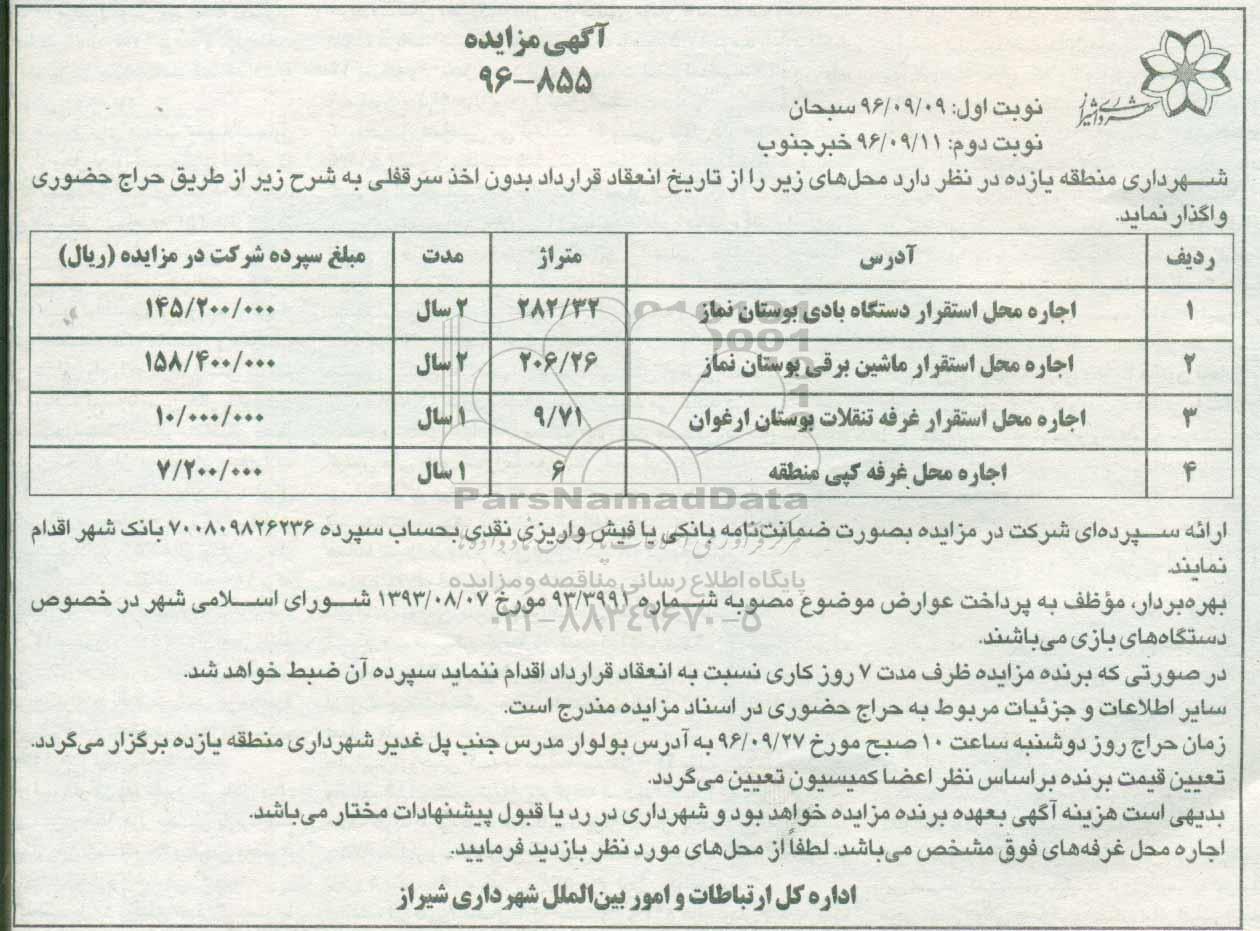 آگهی مزایده
۹۶-۸۵۵
شهرداری شیراز
نوبت اول: ۹۶/۰۹/۰۹ سبحان
نوبت دوم: ۹۶/۰۹/۱۱ خبرجنوب
شهرداری منطقه یازده در نظر دارد محل‌های زیر را از تاریخ انعقاد قرارداد بدون اخذ سرقفلی به شرح زیر از طریق حراج حضوری
واگذار نماید.
ردیف آدرس متراژ مدت مبلغ سپرده شرکت در مزایده (ریال)
۱ اجاره محل استقرار دستگاه بادی بوستان نماز ۲۸۲/۳۲ ۲ سال ۱۴۵/۲۰۰/۰۰۰
۲ اجاره محل استقرار ماشین برقی بوستان نماز ۲۰۶/۲۶ ۲ سال ۱۵۸/۴۰۰/۰۰۰
۳ اجاره محل استقرار غرفه تنقلات بوستان ارغوان ۹/۷۱ ۱ سال ۱۰/۰۰۰/۰۰۰
۴ اجاره محل غرفه کپی منطقه ۶ ۱ سال ۷/۲۰۰/۰۰۰
ParsNamadData
ارائه سپرده‌ای شرکت در مزایده بصورت ضمانت‌نامه بانکی یا فیش واریزی نقدی بحساب سپرده ۷۰۰۸۰۹۸۲۶۲۳۶ بانک شهر اقدام
نمایند.
پایگاه اطلاع رسانی مناقصه و مزایده
بهره‌بردار، مؤظف به پرداخت عوارض موضوع مصوبه شماره ۹۳/۳۹۹۱ مورخ ۱۳۹۳/۰۸/۰۷ شورای اسلامی شهر در خصوص
۰۲۱-۸۸۳۴۹۶۷۰-۵
دستگاه‌های بازی می‌باشند.
در صورتی که برنده مزایده ظرف مدت ۷ روز کاری نسبت به انعقاد قرارداد اقدام ننماید سپرده آن ضبط خواهد شد.
سایر اطلاعات و جزئیات مربوط به حراج حضوری در اسناد مزایده مندرج است.
زمان حراج روز دوشنبه ساعت ۱۰ صبح مورخ ۹۶/۰۹/۲۷ به آدرس بولوار مدرس جنب پل غدیر شهرداری منطقه یازده برگزار می‌گردد.
تعیین قیمت برنده براساس نظر اعضا کمیسیون تعیین می‌گردد.
بدیهی است هزینه آگهی بعهده برنده مزایده خواهد بود و شهرداری در رد یا قبول پیشنهادات مختار می‌باشد.
اجاره محل غرفه‌های فوق مشخص می‌باشد. لطفاً از محل‌های مورد نظر بازدید فرمایید.
اداره کل ارتباطات و امور بین‌الملل شهرداری شیراز